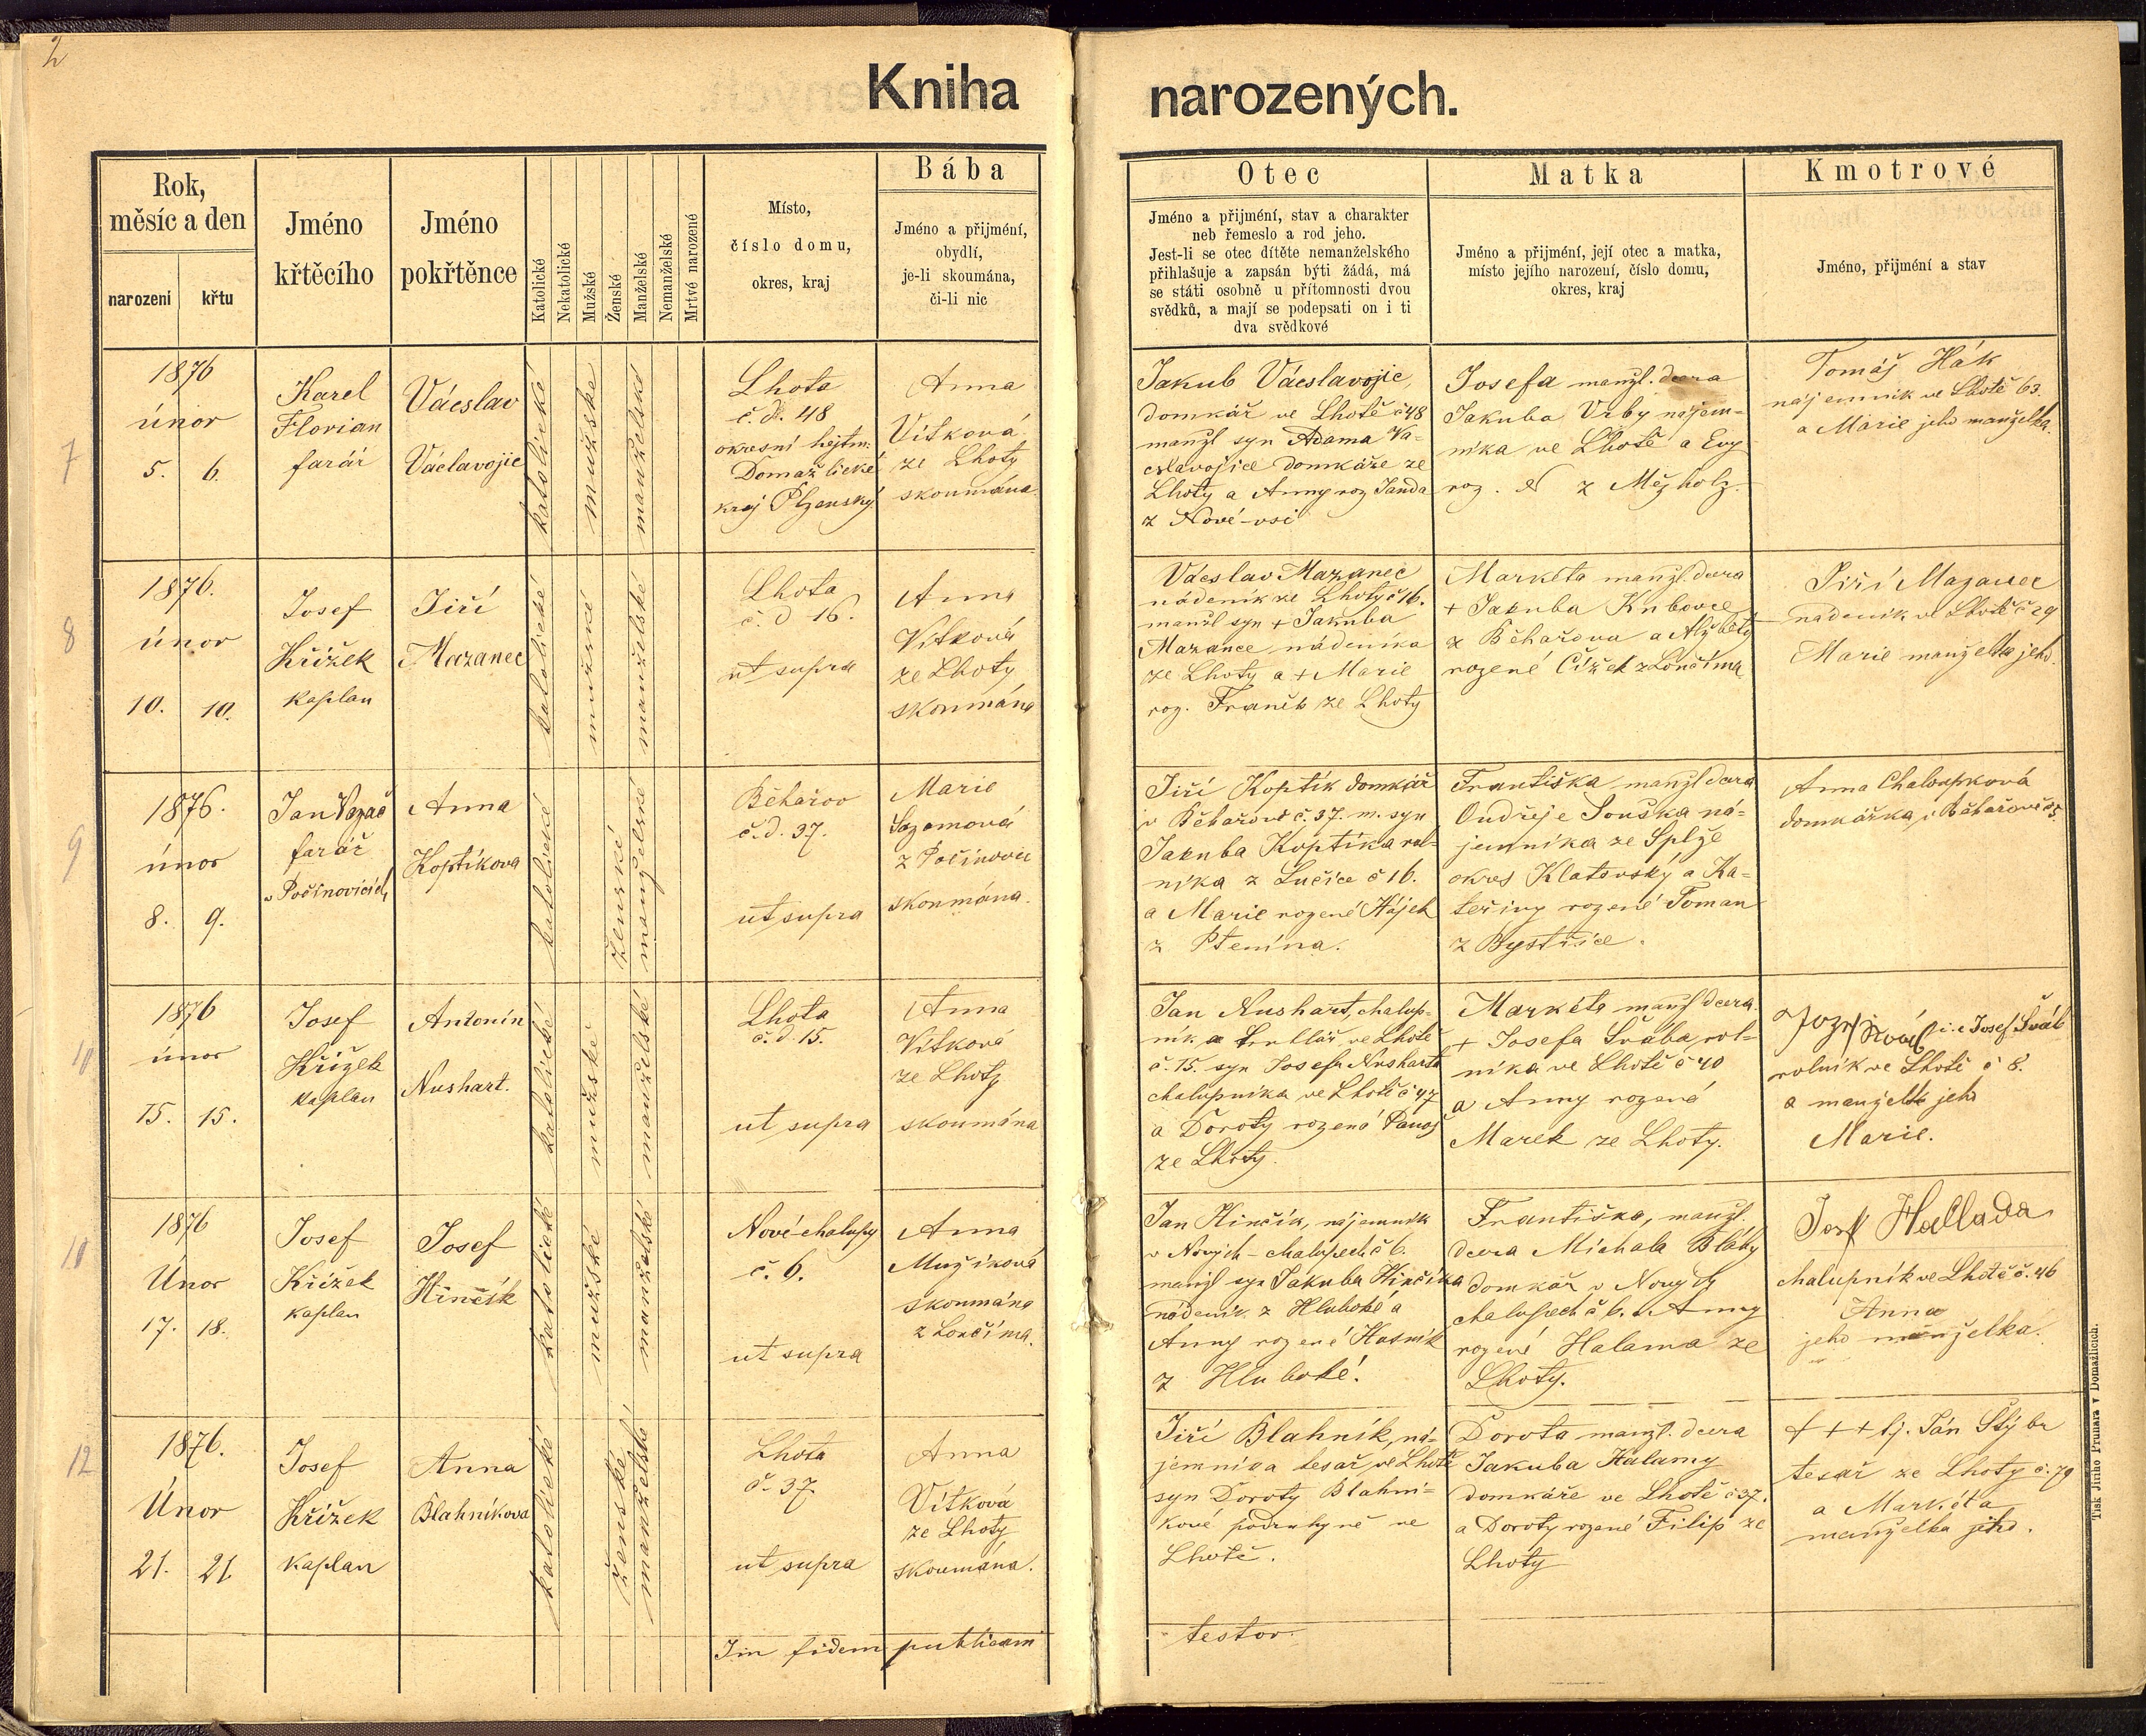 2
Kniha narozených.
Rok,
měsíc a den
narození
křtu
Jméno
křtěcího
Jméno
pokřtěnce
Katolické
Nekatolické
Mužské
Ženské
Manželské
Nemanželské
Mrtvé narozené
Místo,
číslo domu,
okres, kraj
Bába
Jméno a přijmění,
obydlí,
je-li skoumána,
či-li nic
Otec
Jméno a přijmění, stav a charakter
neb řemeslo a rod jeho.
Jest-li se otec dítěte nemanželského
přihlašuje a zapsán býti žádá, má
se státi osobně u přítomnosti dvou
svědků, a mají se podepsati on i ti
dva svědkové
Matka
Jméno a přijmění, její otec a matka,
místo jejího narození, číslo domu,
okres, kraj
Kmotrové
Jméno, přijmění a stav
7
1876
únor
5. 6.
Karel
Florian
farář
Václav
Václavojic
katolické
mužské
manželské
Lhota
č. d. 48
okresní hejtm.
Domažlické
kraj Plzenský
Anna
Vítková
ze Lhoty
skoumána.
Jakub Vácslavojic,
domkář ve Lhotě č 48
manžl syn Adama Va-
cslavojice domkáře ze
Lhoty a Anny roz Janda
z Nové-vsi
Josefa manžl. dcera
Jakuba Vrby nájem-
níka ve Lhotě a Evy
roz. N z Mezholz.
Tomáš Hák
nájemník ve Lhotě 63.
a Marie jeho manželka.
8
1876.
únor
10. 10.
Josef
Křížek
kaplan
Jiří
Mazanec
katolické
mužské
manželské
Lhota
č. d 16.
ut supra
Anna
Vítková
ze Lhoty
skoumána
Vácslav Mazanec
nádeník ze Lhoty č 16.
manžl syn + Jakuba
Mazance nádeníka
ze Lhoty a + Marie
roz. Franěk ze Lhoty
Markéta manžl. dcera
+ Jakuba Kubovce
z Běhařova a Alžběty
rozené Čížek z Lončima
Jiří Mazanec
nádeník ve Lhotě č 29
Marie manželka jeho.
9
1876.
únor
8. 9.
Jan Vazač
farář
v Počínovicích
Anna
Koptíkova
katolické
ženské
manželské
Běhařov
č. d. 37.
ut supra
Marie
Sazamová
z Počínovic
skoumána.
Jiří Koptík domkář
v Běhařově č. 37. m. syn
Jakuba Koptíka rol-
níka z Lučice č 16.
a Marie rozené Hájek
z Ptenína.
Františka manžl dcera
Ondřeje Souška ná-
jemníka ze Splže
okres Klatovský a Ka-
teřiny rozené Toman
z Bystřice.
Anna Chaloupková
domkářka z Běhařově č 5.
10
1876
únor
15. 15.
Josef
Křížek
kaplan
Antonín
Nushart.
katolické
mužské
manželské
Lhota
č. d. 15.
ut supra
Anna
Vítková
ze Lhoty
skoumána
Jan Nushart, chalup-
ník a truhlář ve Lhotě
č. 15. syn Josefa Nusharta
chalupníka ve Lhotě č 47
a Doroty rozené Panoš
ze Lhoty.
Markéta manžl dcera
+ Josefa Švába rol-
níka ve Lhotě č 40
a Anny rozené
Marek ze Lhoty.
Jozef Šváb i. e Josef Šváb
rolník ve Lhotě č 8.
a manželk jeho
Marie.
10
1876
Únor
17. 18.
Josef
Křížek
kaplan
Josef
Hinčík
katolické
mužské
manželské
Nové-chalupy
č. 6.
ut supra
Anna
Mužíková
skoumána
z Lončíma.
Jan Hinčík, nájemník
v Nových-chalupech č 6.
manžl syn Jakuba Hinčíka
nádeník. z Hluboké a
Anny rozené Hasník
z Hluboké.
Františka, manžl.
dcera Michala Bláhy
domkář v Nových
chalupech č 6. a Anny
rozené Halama ze
Lhoty.
Josef Hallada
chalupník ve Lhotě č. 46
Anna
jeho manželka.
12
1876.
Únor
21. 21.
Josef
Křížek
kaplan
Anna
Blahníkova
katolické
ženské
manželské
Lhota
č. 37.
ut supra
Anna
Vítková
ze Lhoty
skoumána.
Jiří Blahník, ná-
jemníka tesař ve Lhotě
syn Doroty Blahní-
kové podruhyně ve
Lhotě.
Dorota manžl. dcera
Jakuba Halamy
domkáře ve Lhotě č 37.
a Doroty rozené Filip ze
Lhoty
+ + + tj. Ján Stýbr
tesař ze Lhoty č. 79
a Markéta
manželka jeho.
Im fidem publicam testor.
Tisk Jiřího Prunara v Domažlicích.